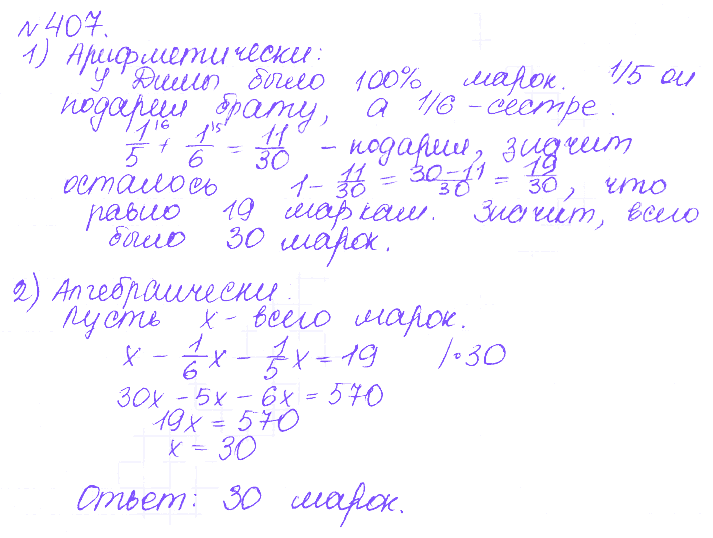 №407.
1) Арифметически:
У Димы было 100% марок. 1/5 он
подарил брату, а 1/6 - сестре.
1/5 ⁽⁶ + 1/6 ⁽⁵ = 11/30 - подарил, значит
осталось 1 - 11/30 = (30-11)/30 = 19/30, что
равно 19 маркам. Значит, всего
было 30 марок.
2) Алгебраически.
Пусть x - всего марок.
x - 1/6 x - 1/5 x = 19 /·30
30x - 5x - 6x = 570
19x = 570
x = 30
Ответ: 30 марок.